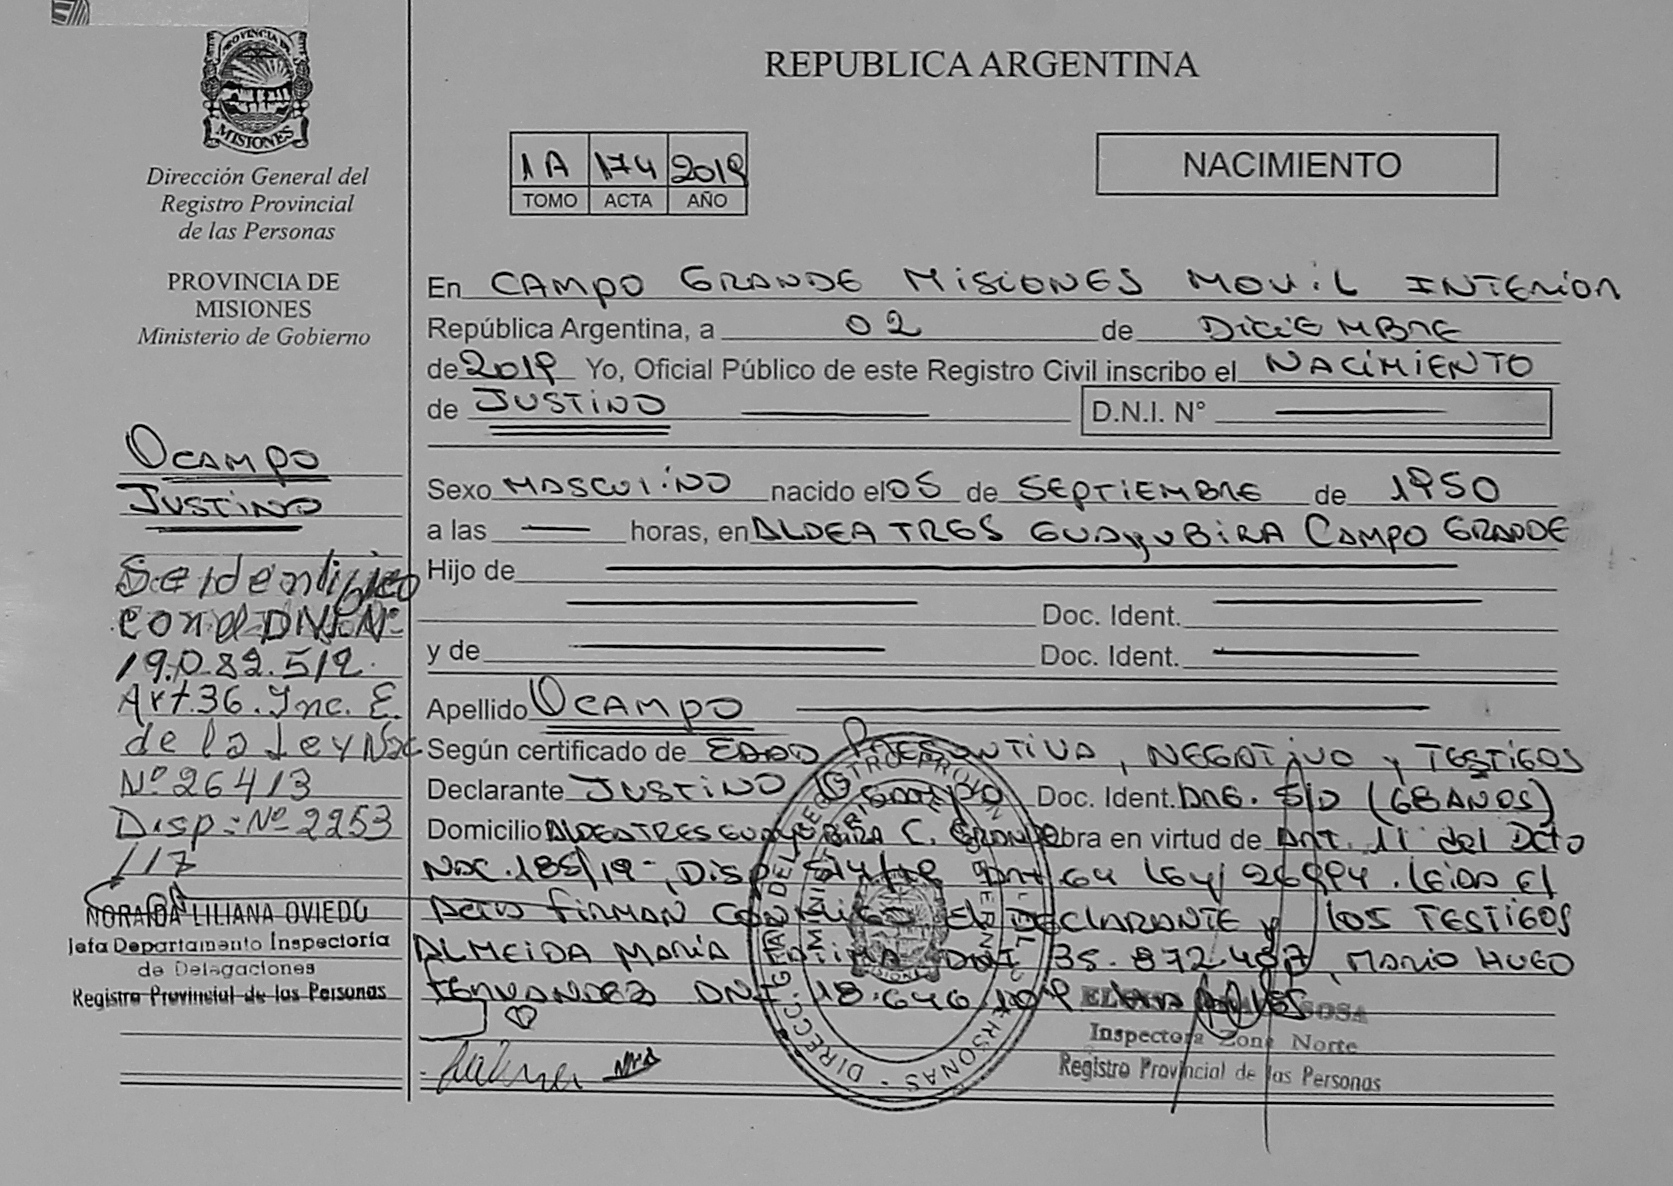 PROVINCIA DE
MISIONES
Dirección General del
Registro Provincial
de las Personas
PROVINCIA DE
MISIONES
Ministerio de Gobierno
Ocampo
Justino
Se identifico
con el DNI. Nº
19.082.512.
Art.36. Inc. E.
de la Ley Nac
Nº 26413
Disp: Nº 2253
117
NORAIDA LILIANA OVIEDO
Jefa Departamento Inspectoria
de Delegaciones
Registro Provincial de las Personas
REPUBLICA ARGENTINA
1A 174 2019
TOMO ACTA AÑO
NACIMIENTO
En CAMPO GRANDE MISIONES MOVIL INTERIOR
República Argentina, a 02 de DICIEMBRE
de 2019 Yo, Oficial Público de este Registro Civil inscribo el NACIMIENTO
de JUSTINO D.N.I. N°
Sexo MASCULINO nacido el 05 de SEPTIEMBRE de 1950
a las horas, en ALDEA TRES GUAYUBIRA CAMPO GRANDE
Hijo de
Doc. Ident.
y de Doc. Ident.
Apellido OCAMPO
Según certificado de EDAD PRESUNTIVA, NEGATIVO y TESTIGOS
Declarante JUSTINO Ocampo Doc. Ident. ARG. S/D (68 AÑOS)
Domicilio ALDEA TRES GUAYUBIRA C. GRANDE Obra en virtud de ART. 11 del Dcto
Nac. 185/19-, Disp Art 64 Ley 26994. Leida el
Acta FIRMAN CONMIGO El DECLARANTE y los TESTIGOS
ALMEIDA MARIA DNI 35.872.407, MARIO HUGO
FERNANDEZ DNI. 18.646.
SOSA
Inspectora Zona Norte
Registro Provincial de las Personas